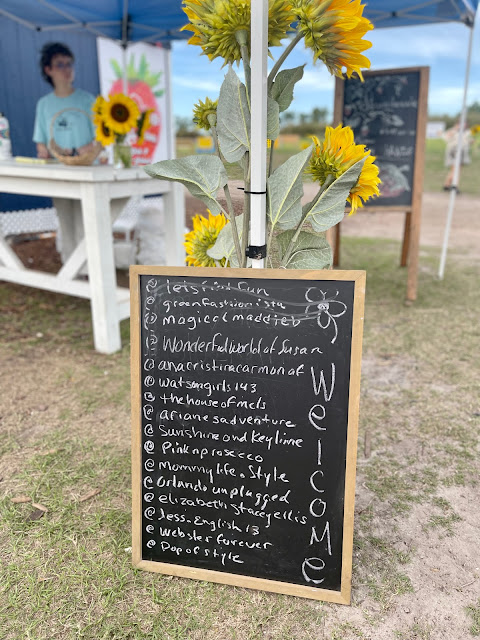 @letsfindfun
@greenfashionista
@magicalmaddieb
@Wonderfulworldofsusan
@anacristinacarmonaf
@watsongirls143
@thehouseofmcls
@arianesadventure
@SunshineandKeylime
@Pinknprosecco
@mommylife.Style
@Orlandounplugged
@elizabethstaceyellis
@Jess.English13
@websterfurever
@Popofstyle
Welcome